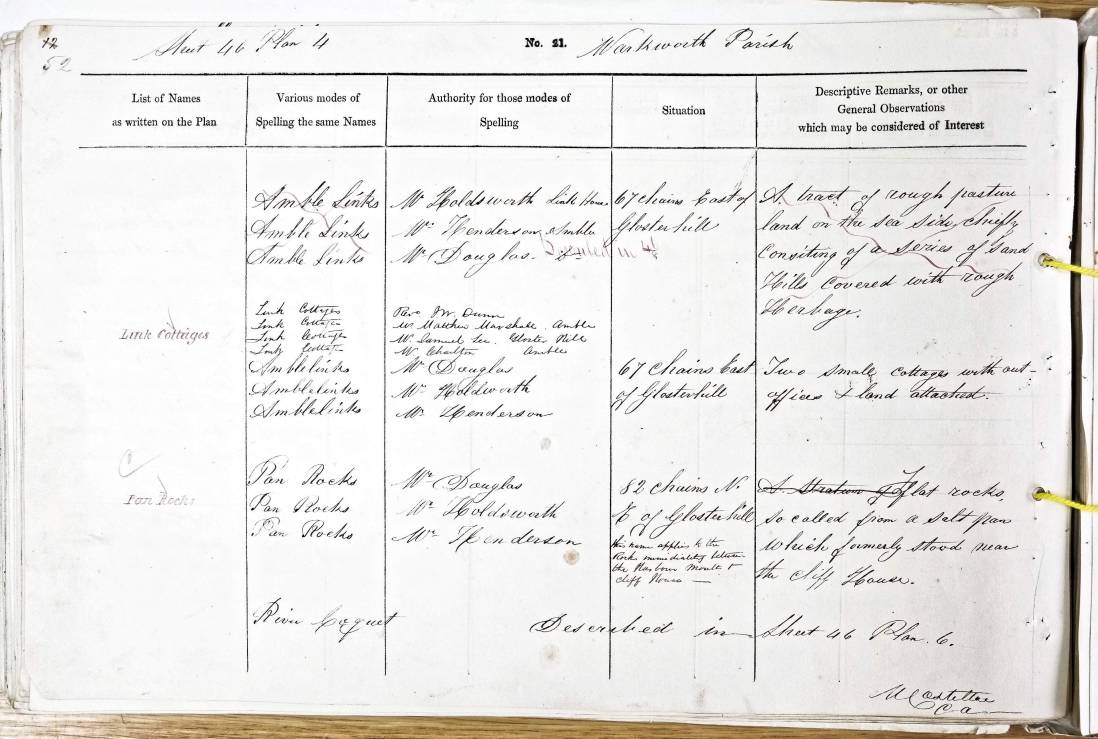 12
52
Sheet 46 Plan 4
No. 21.
Warkworth Parish
List of Names
as written on the Plan
Various modes of
Spelling the same Names
Authority for those modes of
Spelling
Situation
Descriptive Remarks, or other
General Observations
which may be considered of Interest
Amble Links Mr Holdsworth Link House 67 chains East of A tract of rough pasture
Amble Links Mr Henderson, Amble Glosterhill land on the sea side, chiefly
Amble Links Mr Douglas. in consiting of a series of Sand
Hills covered with rough
Herbage.
Link Cottages
Link Cottages Revd J.W. Dunn
Link Cottages Mr Matthew Marshall. Amble
Link Cottages Mr. Samuel Gloster Hill
Link Cottages Mr Charlton Amble
Amblelinks Mr Douglas 67 chains East Two small cottages with out-
Amblelinks Mr Holdsworth of Glosterhill offices & land attached.
Amblelinks Mr Henderson
Pan Rocks
Pan Rocks Mr Douglas 82 chains N. A Stratum of Flat rocks,
Pan Rocks Mr Holdsworth E of Glosterhill so called from a salt pan
Pan Rocks Mr Henderson which formerly stood near
the cliff House.
this name applies to the
Rock immidiatley between
the Harbour Mouth &
Cliff House
River Coquet Described in Sheet 46 Plan 6.
C a